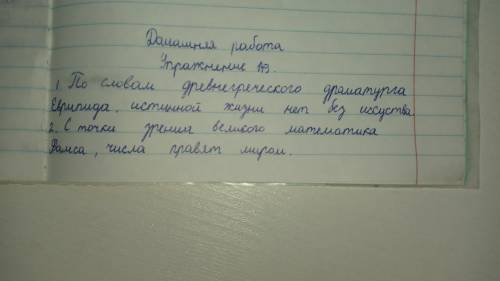 Домашняя работа
Упражнение
1. По словам древнегреческого драматурга
Еврипида, истинной жизни нет без искуства
2. С точки зрения великого математика
числа правят миром.